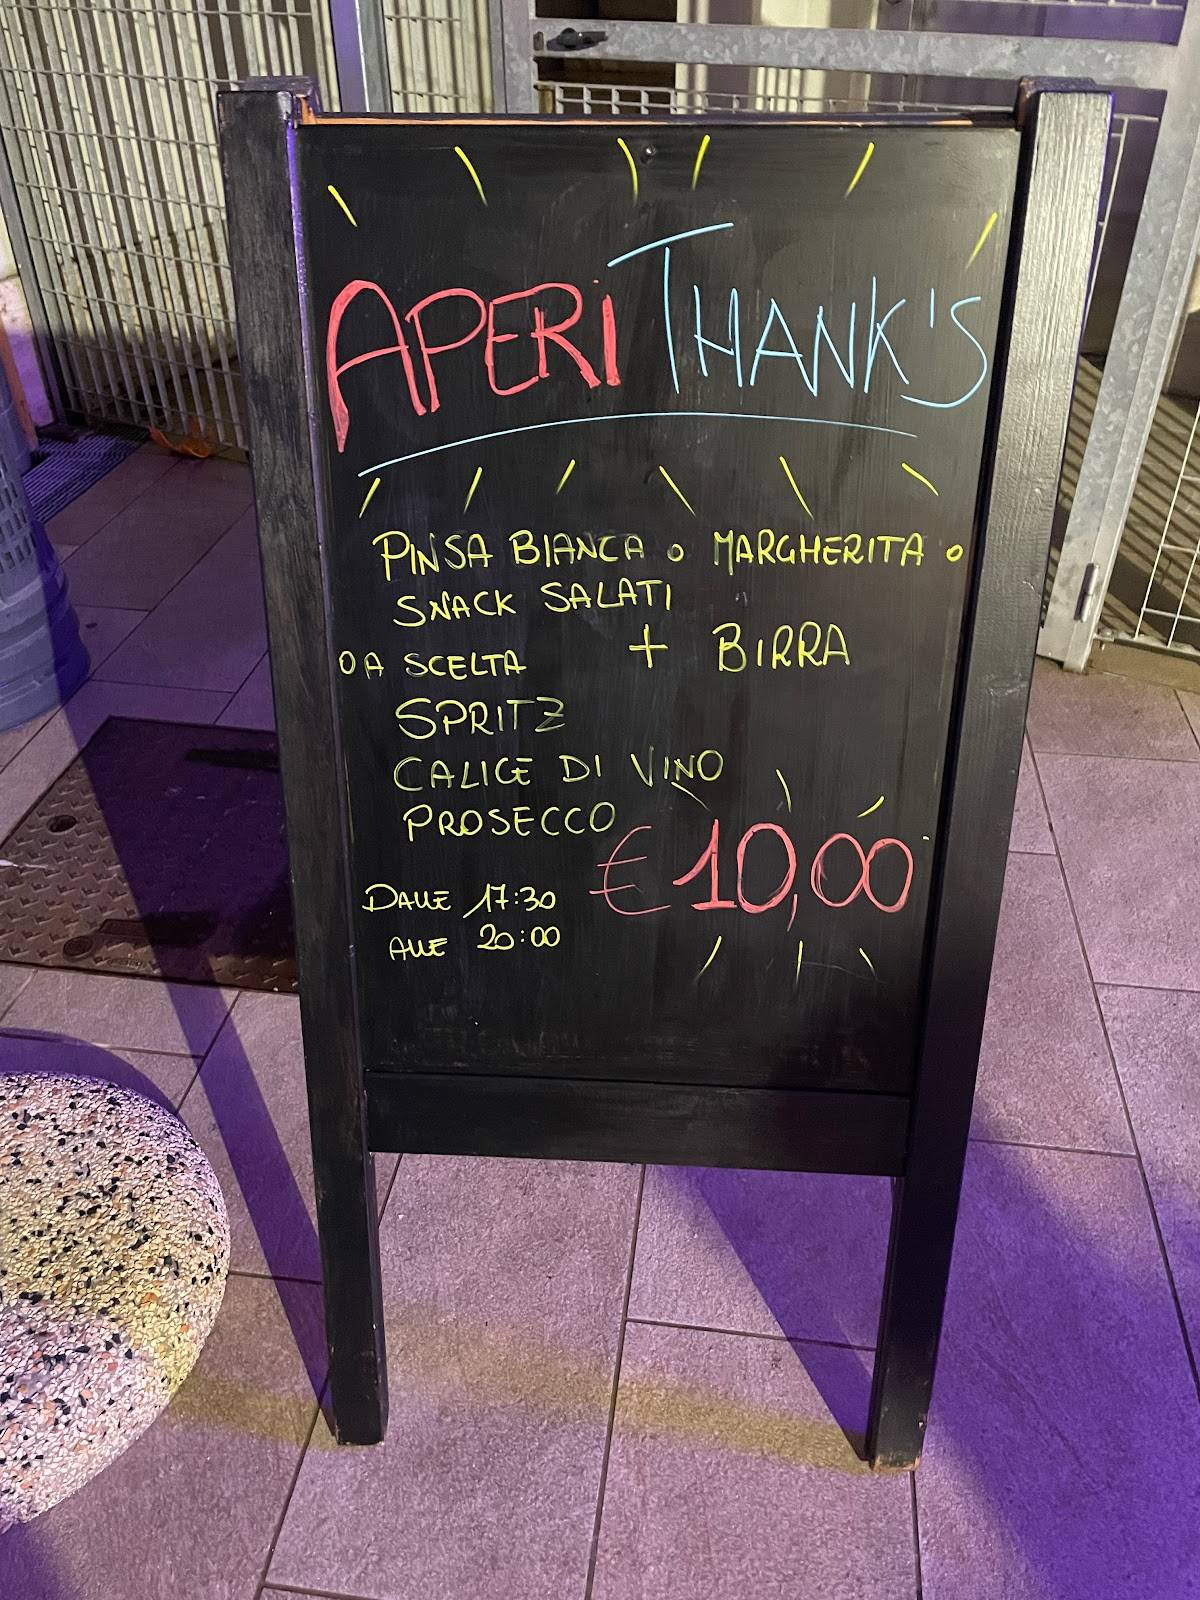 APERiTHANK'S
PINSA BIANCA o MARGHERITA o
SNACK SALATI
+ BIRRA
O A SCELTA
SPRITZ
CALICE DI VINO
PROSECCO
€ 10,00
DALLE 17:30
ALLE 20:00